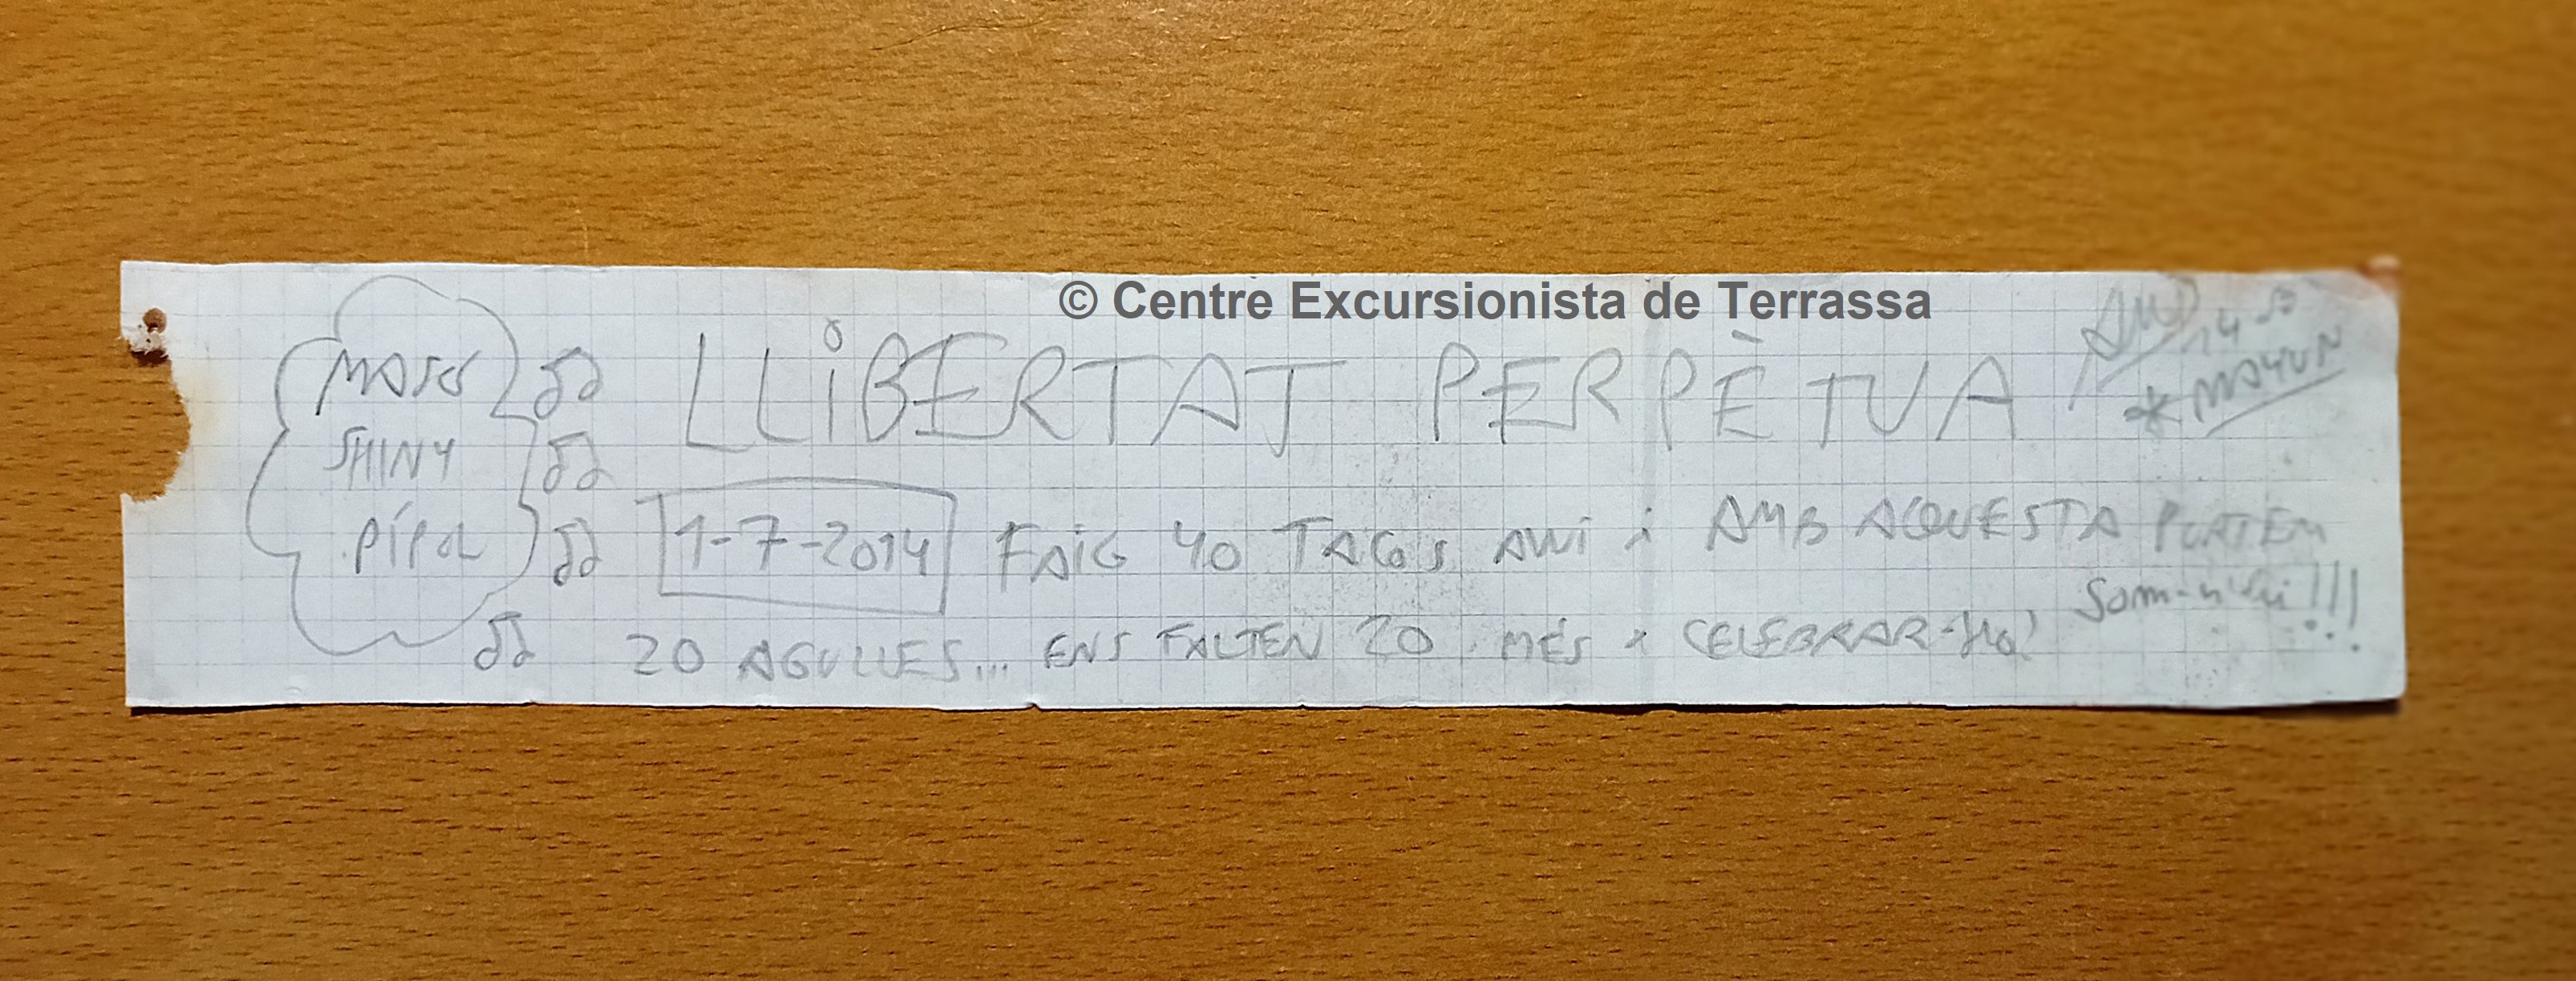 © Centre Excursionista de Terrassa
SHINY
PÍPOL
LLiBERTAT PERPÈTUA
1-7-2014 FAiG 40 TACOS AVUi i AMB AQUESTA PORTEM
20 AGULLES... ENS FALTEN 20 MÉS x CELEBRAR-HO!
Som-n'hi!!!